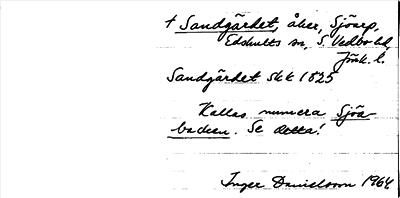 † Sandgärdet, åker, Sjöarp,
Edshults sn, S. Vedbo hd,
Jönk. l.
Sandgärdet skk 1825
Kallas numera Sjöa-
backen. Se detta!
Inger Danielsson 1964